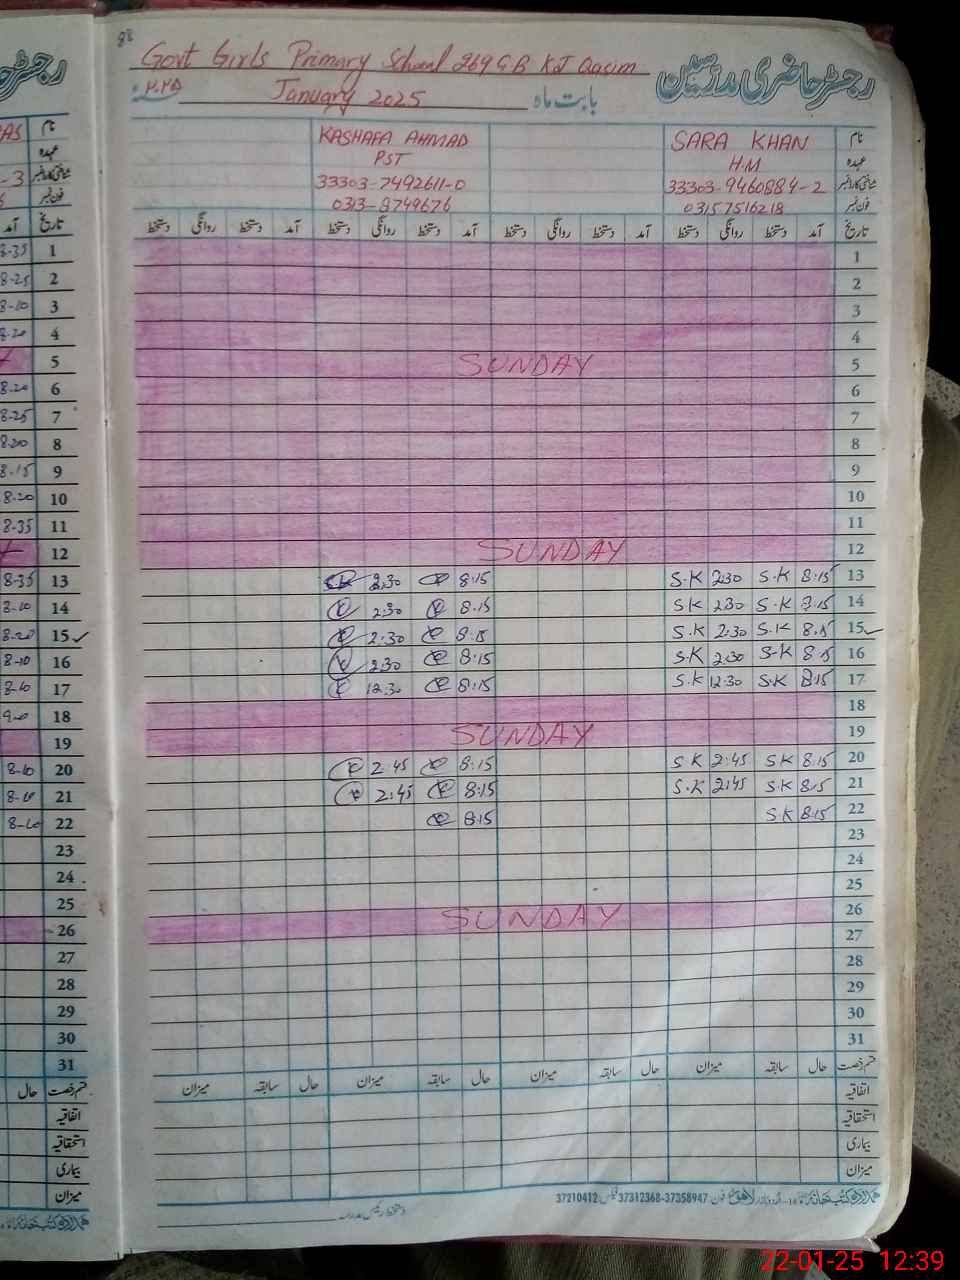 88
Govt Girls Primary School 269 G.B KJ Qasim
رجسٹر حاضری مدرسین
رجسٹر حا
۲۰۲۵
January 2025
بابت ماہ
KASHAFA AHMAD SARA KHAN نام
PST H.M عہدہ
33303-7492611-0 33303-9460884-2 شناختی کارڈ نمبر
0313-8749676 03157516218 فون نمبر
آمد تاریخ دستخط روانگی دستخط آمد دستخط روانگی دستخط آمد دستخط روانگی دستخط آمد دستخط روانگی دستخط آمد تاریخ
8-35 1 1
8-25 2 2
8-10 3 3
8-20 4 4
5 SUNDAY 5
8-20 6 6
8-25 7 7
8-20 8 8
8-15 9 9
8-20 10 10
8-35 11 11
12 SUNDAY 12
8-35 13 2:30 8:15 S.K 2:30 S.K 8:15 13
8-10 14 2:30 8:15 SK 2:30 S.K 8:15 14
8-20 15 ✓ 2:30 8:15 S.K 2:30 S.K 8:15 15 ✓
8-10 16 2:30 8:15 S.K 2:30 S-K 8:15 16
8-10 17 12:30 8:15 S.K 12:30 S.K 8:15 17
18 18
19 SUNDAY 19
8-10 20 2:45 8:15 S K 2:45 S K 8:15 20
8-10 21 2:45 8:15 S.K 2:45 S.K 8:15 21
8-10 22 8:15 S.K 8:15 22
23 23
24 24
25 25
26 SUNDAY 26
27 27
28 28
29 29
30 30
31 31
حال قسم رخصت میزان سابقہ حال میزان سابقہ حال میزان سابقہ حال میزان سابقہ حال قسم رخصت
اتفاقیہ اتفاقیہ
استحقاقیہ استحقاقیہ
بیماری بیماری
میزان میزان
ہمدرد کتب خانہ اردو بازار لاہور فون 37358947-37312368 فیکس 37210412
دستخط رئیس مدرسہ
22-01-25 12:39